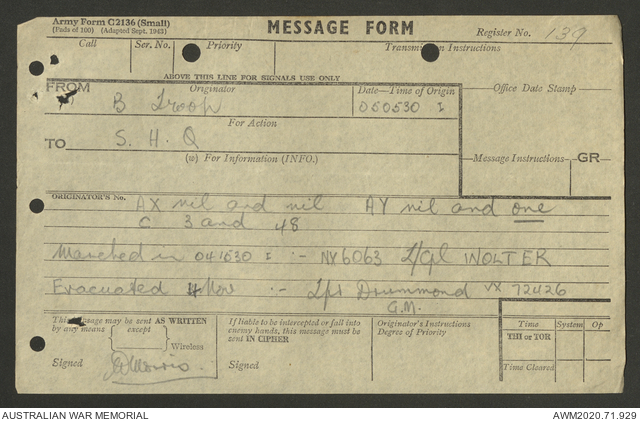 Army Form C2136 (Small)
(Pads of 100) (Adapted Sept. 1943)
MESSAGE FORM
Register No. 139
Call
Ser. No.
Priority
Transmission Instructions
ABOVE THIS LINE FOR SIGNALS USE ONLY
FROM
Originator
Date—Time of Origin
Office Date Stamp
B Troop
050530 I
For Action
TO
S. H. Q
(w) For Information (INFO.)
Message Instructions
GR
ORIGINATOR'S No.
AX nil and nil AY nil and one
C 3 and 48
Marched in 041630 I :- NX6063 L/Cpl WOLTER
Evacuated 4 Nov :- Drummond VX 72426
G.M.
This message may be sent AS WRITTEN
by any means except
Wireless
Signed
If liable to be intercepted or fall into
enemy hands, this message must be
sent IN CIPHER
Signed
Originator's Instructions
Degree of Priority
Time
System
Op
THI or TOR
Time Cleared
AUSTRALIAN WAR MEMORIAL
AWM2020.71.929